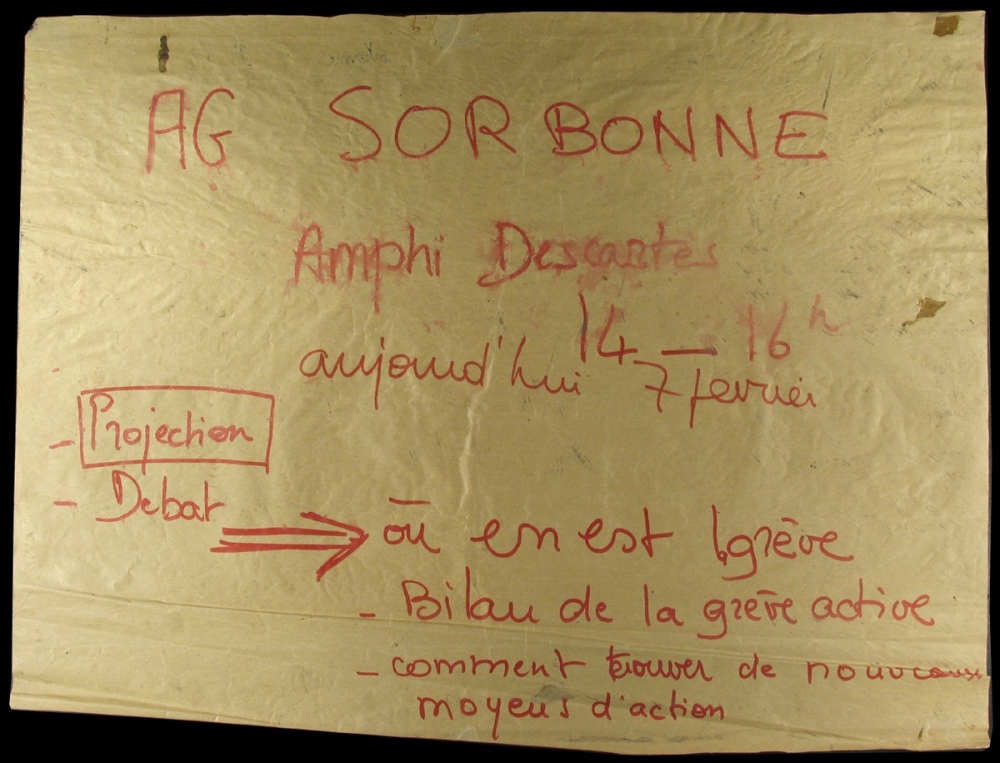 AG SORBONNE
Amphi Descartes
14 — 16 h
aujourd'hui 7 fevrier
- Projection
- Debat ⇒ où en est la grève
- Bilan de la grève active
- comment trouver de nouveaux
moyens d'action